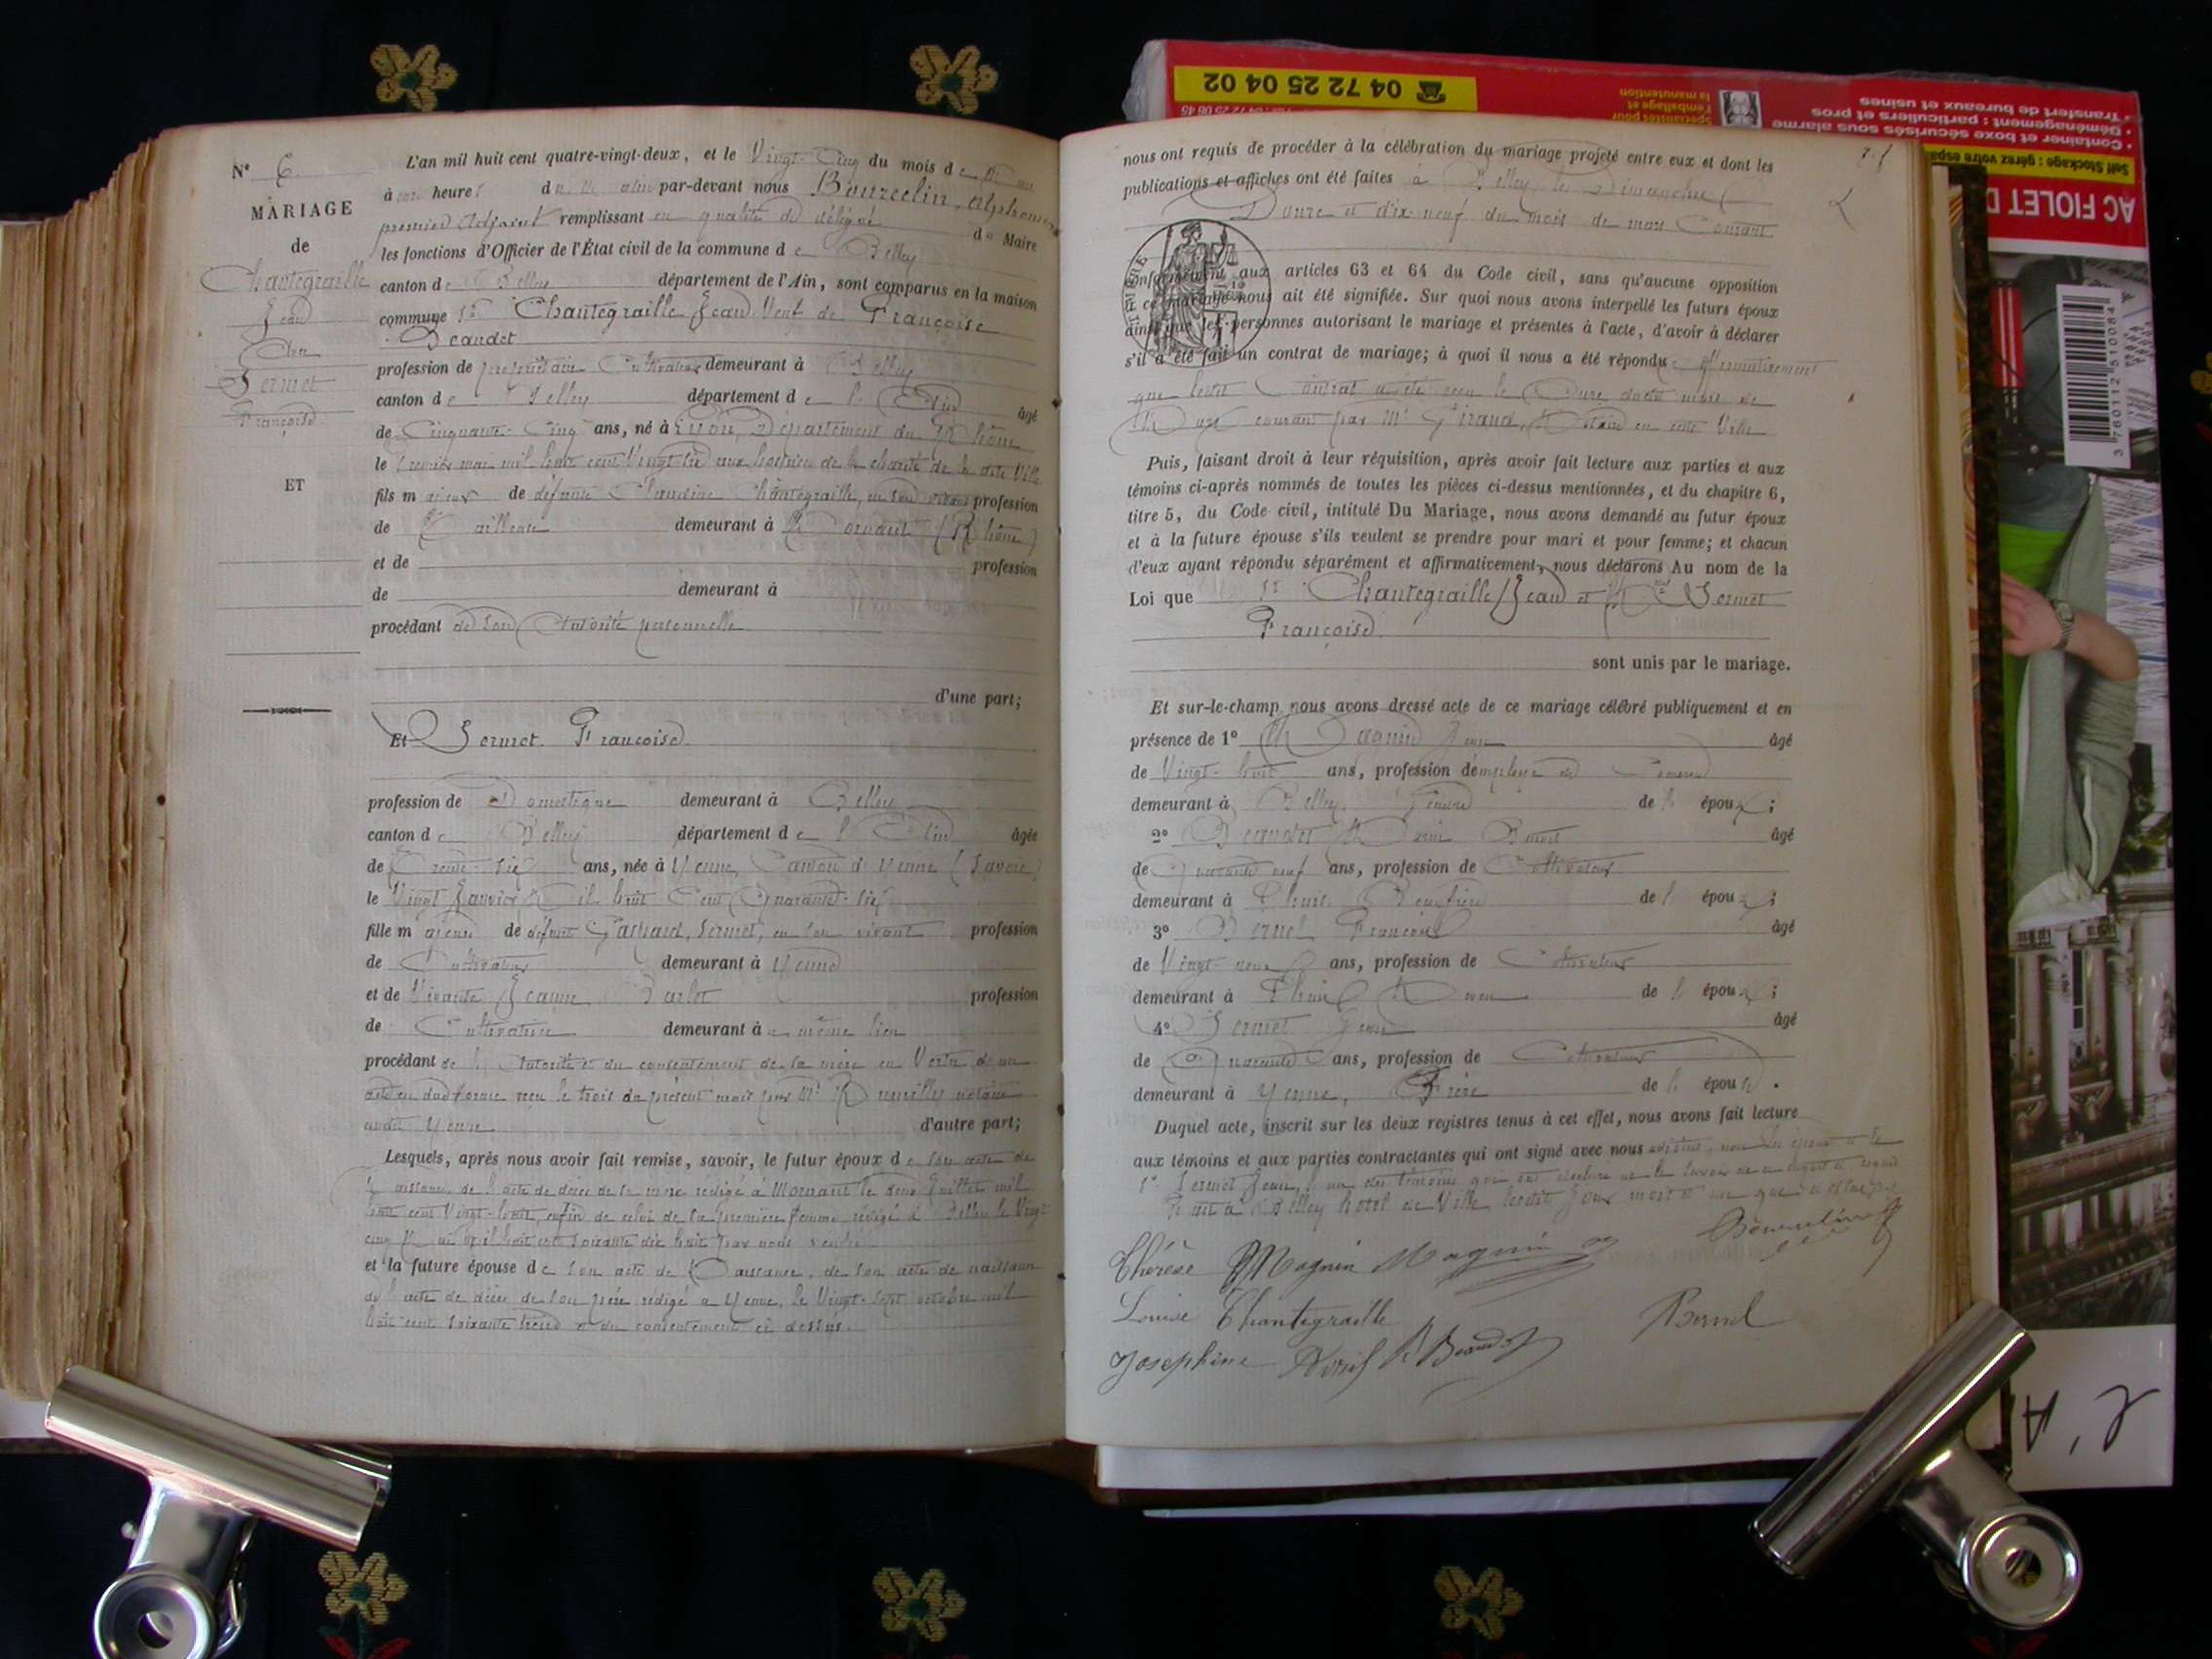 N° 6
MARIAGE
de
Chantegraille
Jean
Avec
Sermet
Françoise
ET
L'an mil huit cent quatre-vingt-deux, et le Vingt-Cinq du mois de
à heures du Matin par-devant nous Bourcelin, Alphonse
premier Adjoint remplissant en qualité de délégué du Maire
les fonctions d'Officier de l'État civil de la commune de Belley
canton de Belley département de l'Ain, sont comparus en la maison
commune Sr Chantegraille Jean Veuf de Françoise
Beaudet
profession de propriétaire Cultivateur demeurant à Belley
canton de Belley département de l'Ain âgé
de Cinquante-Cinq ans, né à Lyon, Département du Rhône
le mai mil huit cent Vingt aux hospices de la charité de la dite Ville
fils majeur de défunte Claudine Chantegraille, en son vivant profession
de Tailleuse demeurant à Mornant (Rhône)
et de profession
de demeurant à
procédant de son Autorité personnelle
d'une part;
Et Sermet Françoise
profession de Domestique demeurant à Belley
canton de Belley département de l'Ain âgée
de Trente-six ans, née à Yenne, Canton d'Yenne (Savoie)
le Vingt Janvier Mil huit Cent Quarante-six
fille majeure de défunt Gaspard Sermet, en son vivant profession
de Cultivateur demeurant à Yenne
et de Vivante Jeanne Burlet profession
de Cultivatrice demeurant au même lieu
procédant de l'Autorité et du consentement de sa mère en Vertu d'un
acte en due forme reçu le trois du présent mois par Me Rumilly notaire
audit Yenne d'autre part;
Lesquels, après nous avoir fait remise, savoir, le futur époux de son acte de
Naissance, de l'acte de décès de sa mère rédigé à Mornant le deux Juillet mil
huit cent Vingt-huit, enfin de celui de sa première femme rédigé à Belley le Vingt
cinq mil huit cent soixante dix huit par nous
et la future épouse de son acte de Naissance, de son acte de naissance
de l'acte de décès de son père rédigé à Yenne, le Vingt-sept octobre mil
huit cent soixante treize et du consentement ci dessus.
nous ont requis de procéder à la célébration du mariage projeté entre eux et dont les
publications et affiches ont été faites à Belley les Dimanches
Douze et dix-neuf du mois de mars Courant
conformément aux articles 63 et 64 du Code civil, sans qu'aucune opposition
à ce mariage nous ait été signifiée. Sur quoi nous avons interpellé les futurs époux
ainsi que les personnes autorisant le mariage et présentes à l'acte, d'avoir à déclarer
s'il a été fait un contrat de mariage; à quoi il nous a été répondu affirmativement
que ledit Contrat a été reçu le Onze dudit mois de
Mars courant par Me Giraud, Notaire en cette Ville
Puis, faisant droit à leur réquisition, après avoir fait lecture aux parties et aux
témoins ci-après nommés de toutes les pièces ci-dessus mentionnées, et du chapitre 6,
titre 5, du Code civil, intitulé Du Mariage, nous avons demandé au futur époux
et à la future épouse s'ils veulent se prendre pour mari et pour femme; et chacun
d'eux ayant répondu séparément et affirmativement, nous déclarons Au nom de la
Loi que Sr Chantegraille Jean et Sermet
Françoise
sont unis par le mariage.
Et sur-le-champ nous avons dressé acte de ce mariage célébré publiquement et en
présence de 1° Magnin Jean âgé
de Vingt-huit ans, profession d'employé de Commerce
demeurant à Belley, Gendre de l'époux;
2° Beaudet Benoit âgé
de Quarante neuf ans, profession de Cultivateur
demeurant à Beaufrère de l'époux;
3° François âgé
de Vingt-neuf ans, profession de Cultivateur
demeurant à Neveu de l'époux;
4° Sermet Jean âgé
de Quarante ans, profession de Cultivateur
demeurant à Yenne, Frère de l'épouse.
Duquel acte, inscrit sur les deux registres tenus à cet effet, nous avons fait lecture
aux témoins et aux parties contractantes qui ont signé avec nous adjoint, non les époux et le
Sermet Jean, l'un des témoins qui ont déclaré ne le savoir de ce enquis et requis
Fait à Belley hôtel de Ville lesdits Jour mois et an que
Thérèse Magnin Magnin Bourcelin
Louise Chantegraille
Josephine Beaudet
04 72 25 04 02
Spécialistes pour
l'emballage et
la manutention
• Transfert de bureaux et usines
• Déménagement : particuliers et pros
• Container et boxe sécurisés sous alarme
Self Stockage : gérez votre espa
AC FIOLET D